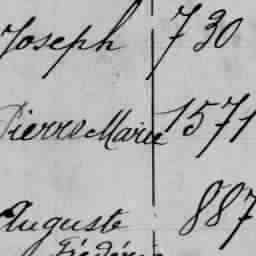 Joseph 730
Pierre Marie 1571
Auguste 887
Frédéric